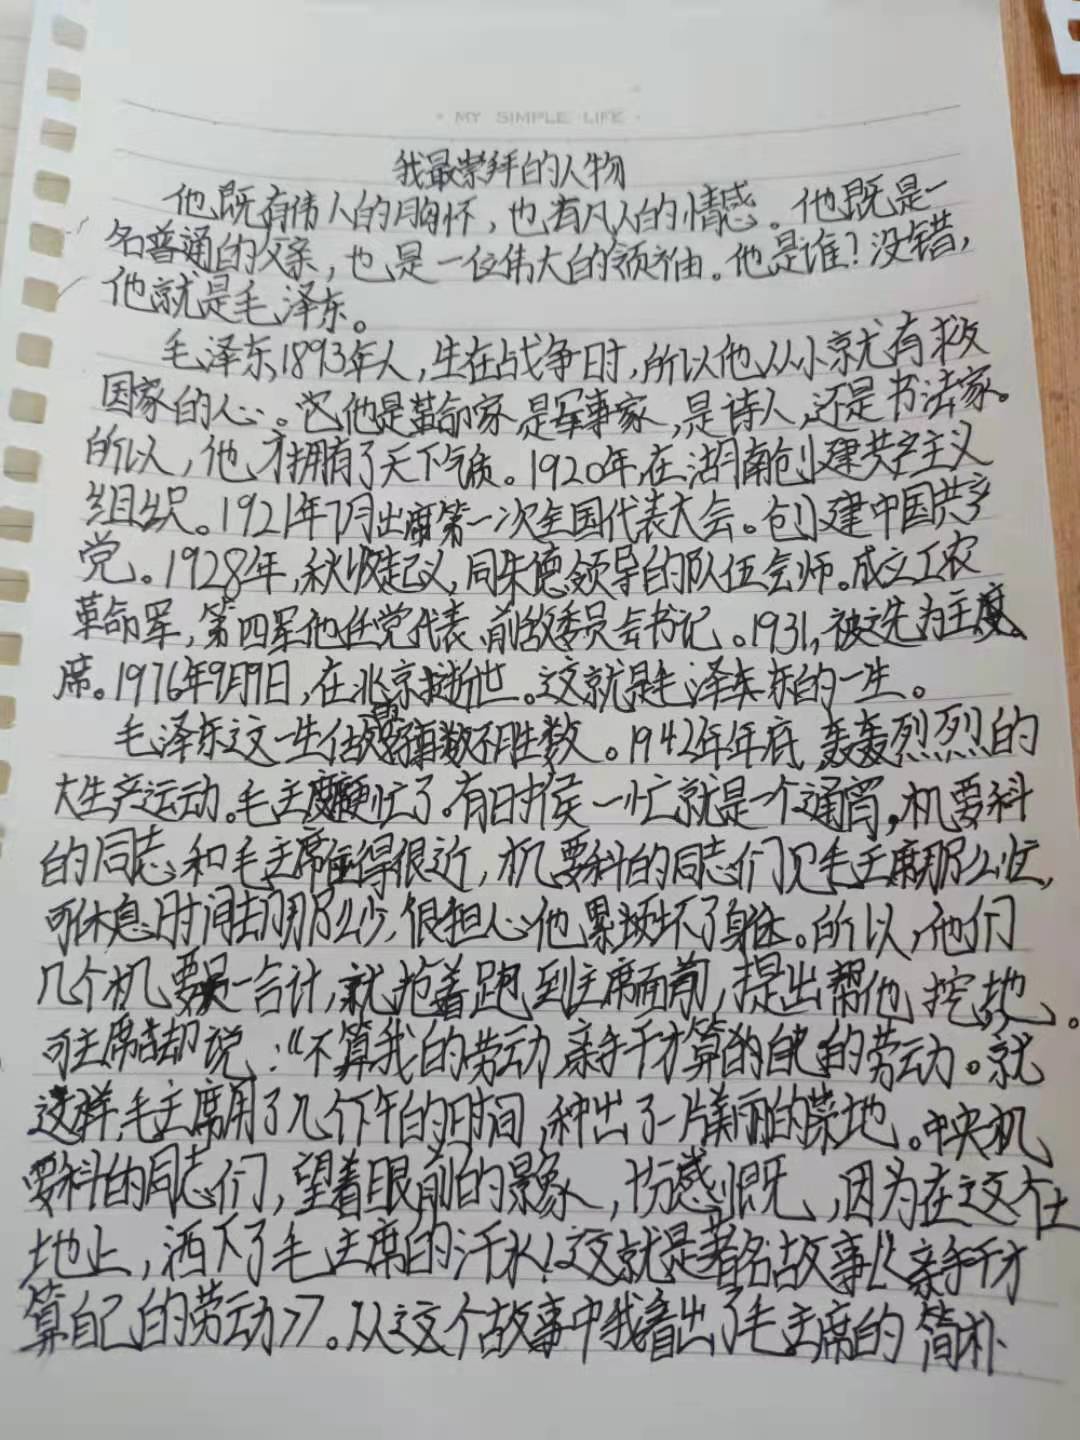 MY SIMPLE LIFE
我最崇拜的人物
他既有伟人的胸怀，也有凡人的情感。他既是一
名普通的父亲，也是一位伟大的领袖。他是谁？没错，
他就是毛泽东。
毛泽东，1893年人，生在战争时，所以他从小就有救
国家的心。他是革命家，是军事家，是诗人，还是书法家。
所以，他才拥有了天下气质。1920年，在湖南创建共产主义
组织。1921年7月出席第一次全国代表大会。创建中国共产
党。1928年，秋收起义，同朱德领导的队伍会师。成立工农
革命军，第四军他任党代表，前敌委员会书记。1931，被选为主
席。1976年9月9日，在北京逝世。这就是毛泽东的一生。
毛泽东这一生做数不胜数。1942年年底，轰轰烈烈的
大生产运动。毛主席更忙了。有时候一忙就是一个通宵，机要科
的同志和毛主席住得很近，机要科的同志们见毛主席那么忙，
可休息时间却那么少，很担心他累坏了身体。所以，他们
几个机要员一合计，就抢着跑到主席面前，提出帮他挖地。
可主席却说：“不算我的劳动，亲手干才算的自己的劳动。就
这样，毛主席用了几个下午的时间，种出了一片美丽的菜地。中央机
要科的同志们，望着眼前的景象，十分感慨，因为在这个土
地上，洒下了毛主席的汗水！这就是著名故事《亲手干才
算自己的劳动》。从这个故事中我看出了毛主席的简朴